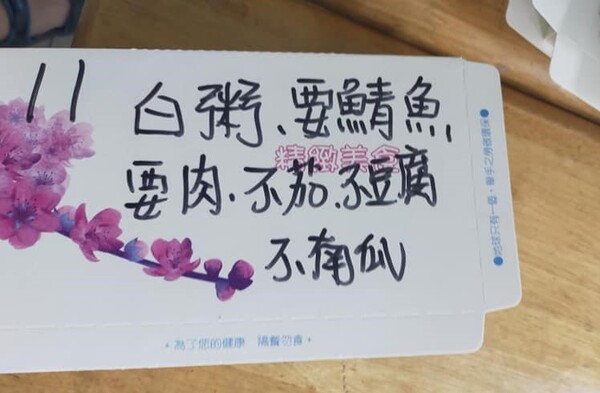 11 白粥、要鯖魚
精緻美食
要肉.不茄.不豆腐
不南瓜
•為了您的健康 隔餐勿食•
●地球只有一個，舉手之勞做環保●